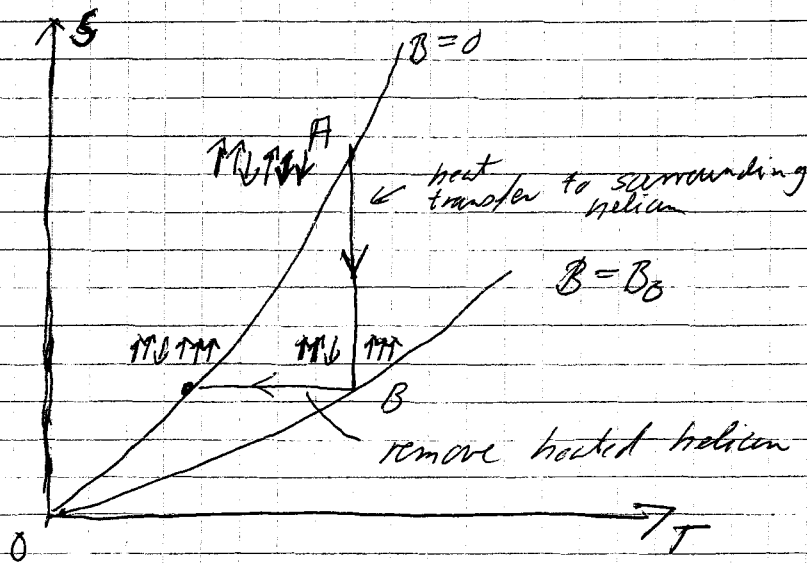 S
B=0
A
↑↑↓↑↓↓
heat
transfer to surrounding
helium
B=B₀
↑↑↓↑↑↑
↑↑↓ ↑↑↑
B
remove heated helium
0
T